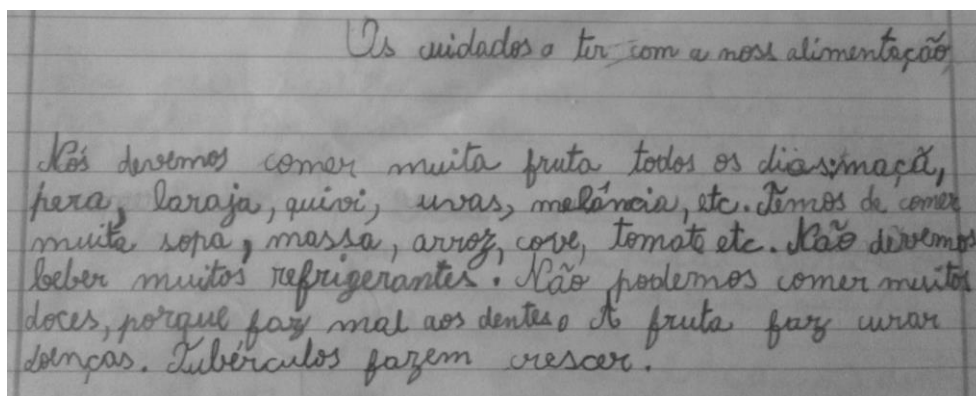 Os cuidados a ter com a noss alimentação
Nós devemos comer muita fruta todos os dias:maçã,
pera, laraja, quivi, uvas, melância, etc. Temos de comer
muita sopa, massa, arroz, cove, tomate etc. Não devemos
beber muitos refrigerantes. Não podemos comer muitos
doces, porque faz mal aos dentes. A fruta faz curar
doenças. Tubérculos fazem crescer.